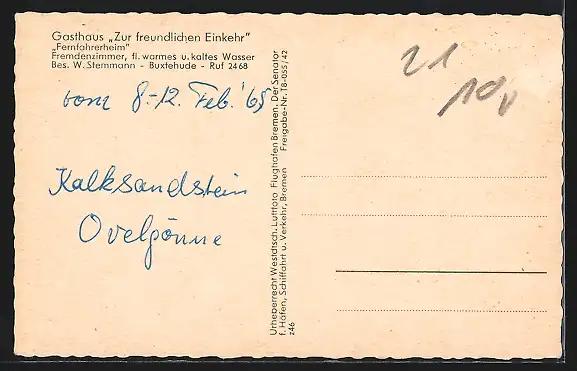 Gasthaus „Zur freundlichen Einkehr"
„Fernfahrerheim"
Fremdenzimmer, fl. warmes u. kaltes Wasser
Bes. W. Stemmann - Buxtehude - Ruf 2468
vom 8.-12. Feb. '65
Kalksandstein
Ovelgönne
Urheberrecht Westdtsch. Luftfoto Flughafen Bremen. Der Senator
f. Häfen, Schiffahrt u. Verkehr, Bremen Freigabe-Nr. 18-055/42
z46
21
10